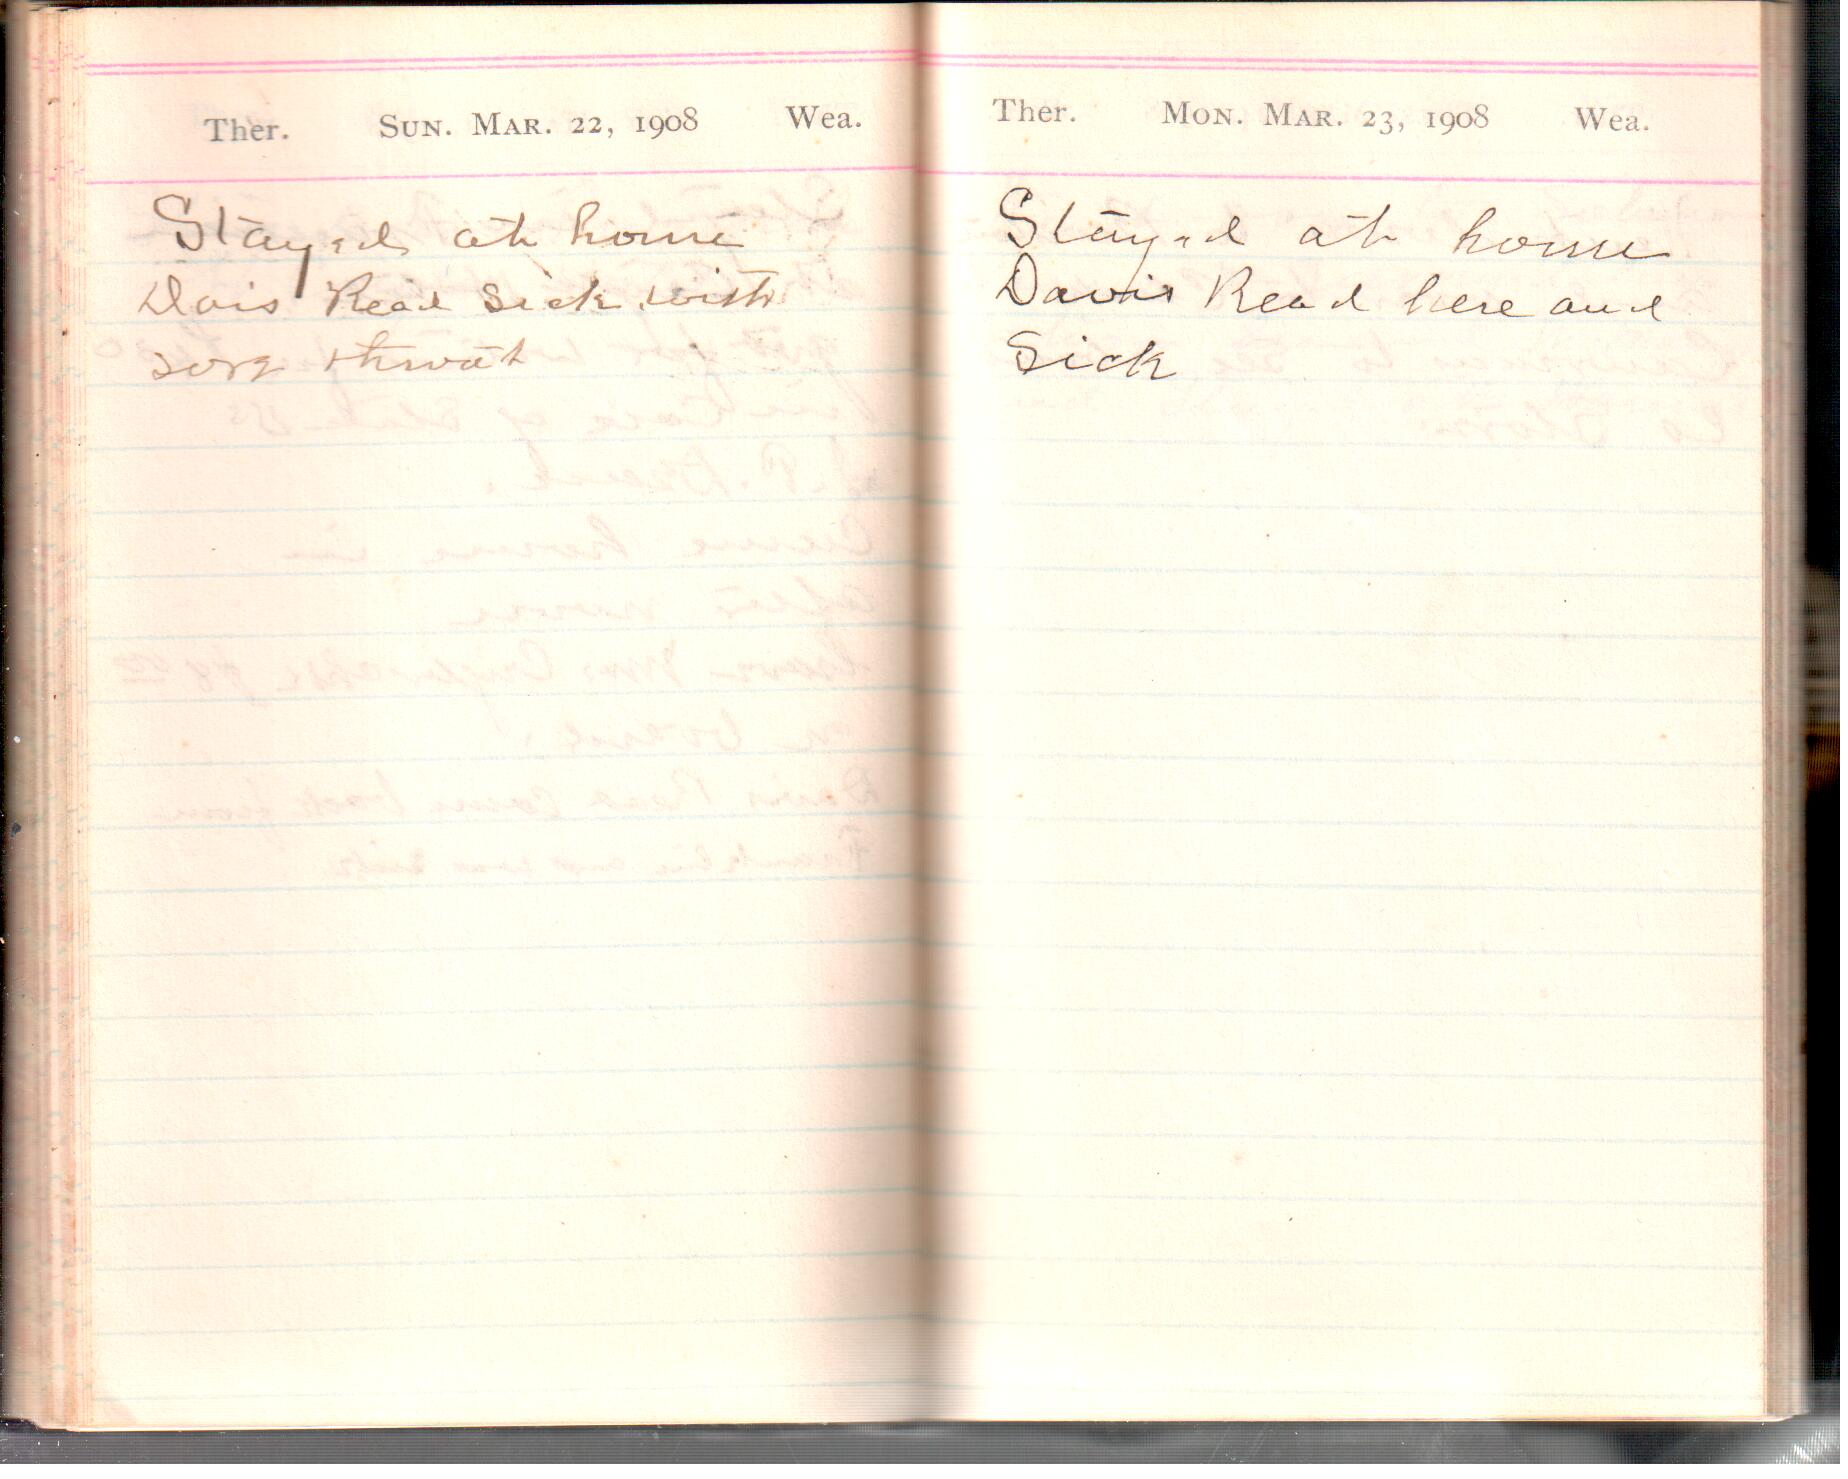 Ther. Sun. Mar. 22, 1908 Wea.
Stayed at home
Dais Read Sick with
sore throat
Ther. Mon. Mar. 23, 1908 Wea.
Stayed at home
Davis Read here and
Sick